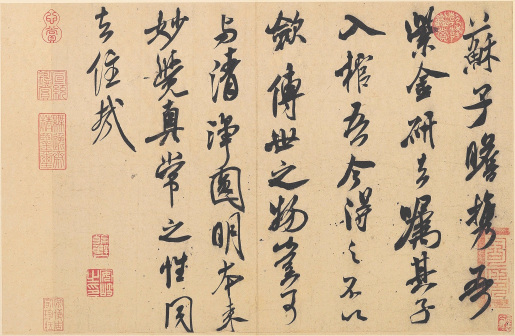 蘇子瞻携吾
紫金研去嘱其子
入棺吾今得之不以
歛傳世之物豈可
与清浄圓明本来
妙覺真常之性同
去住哉